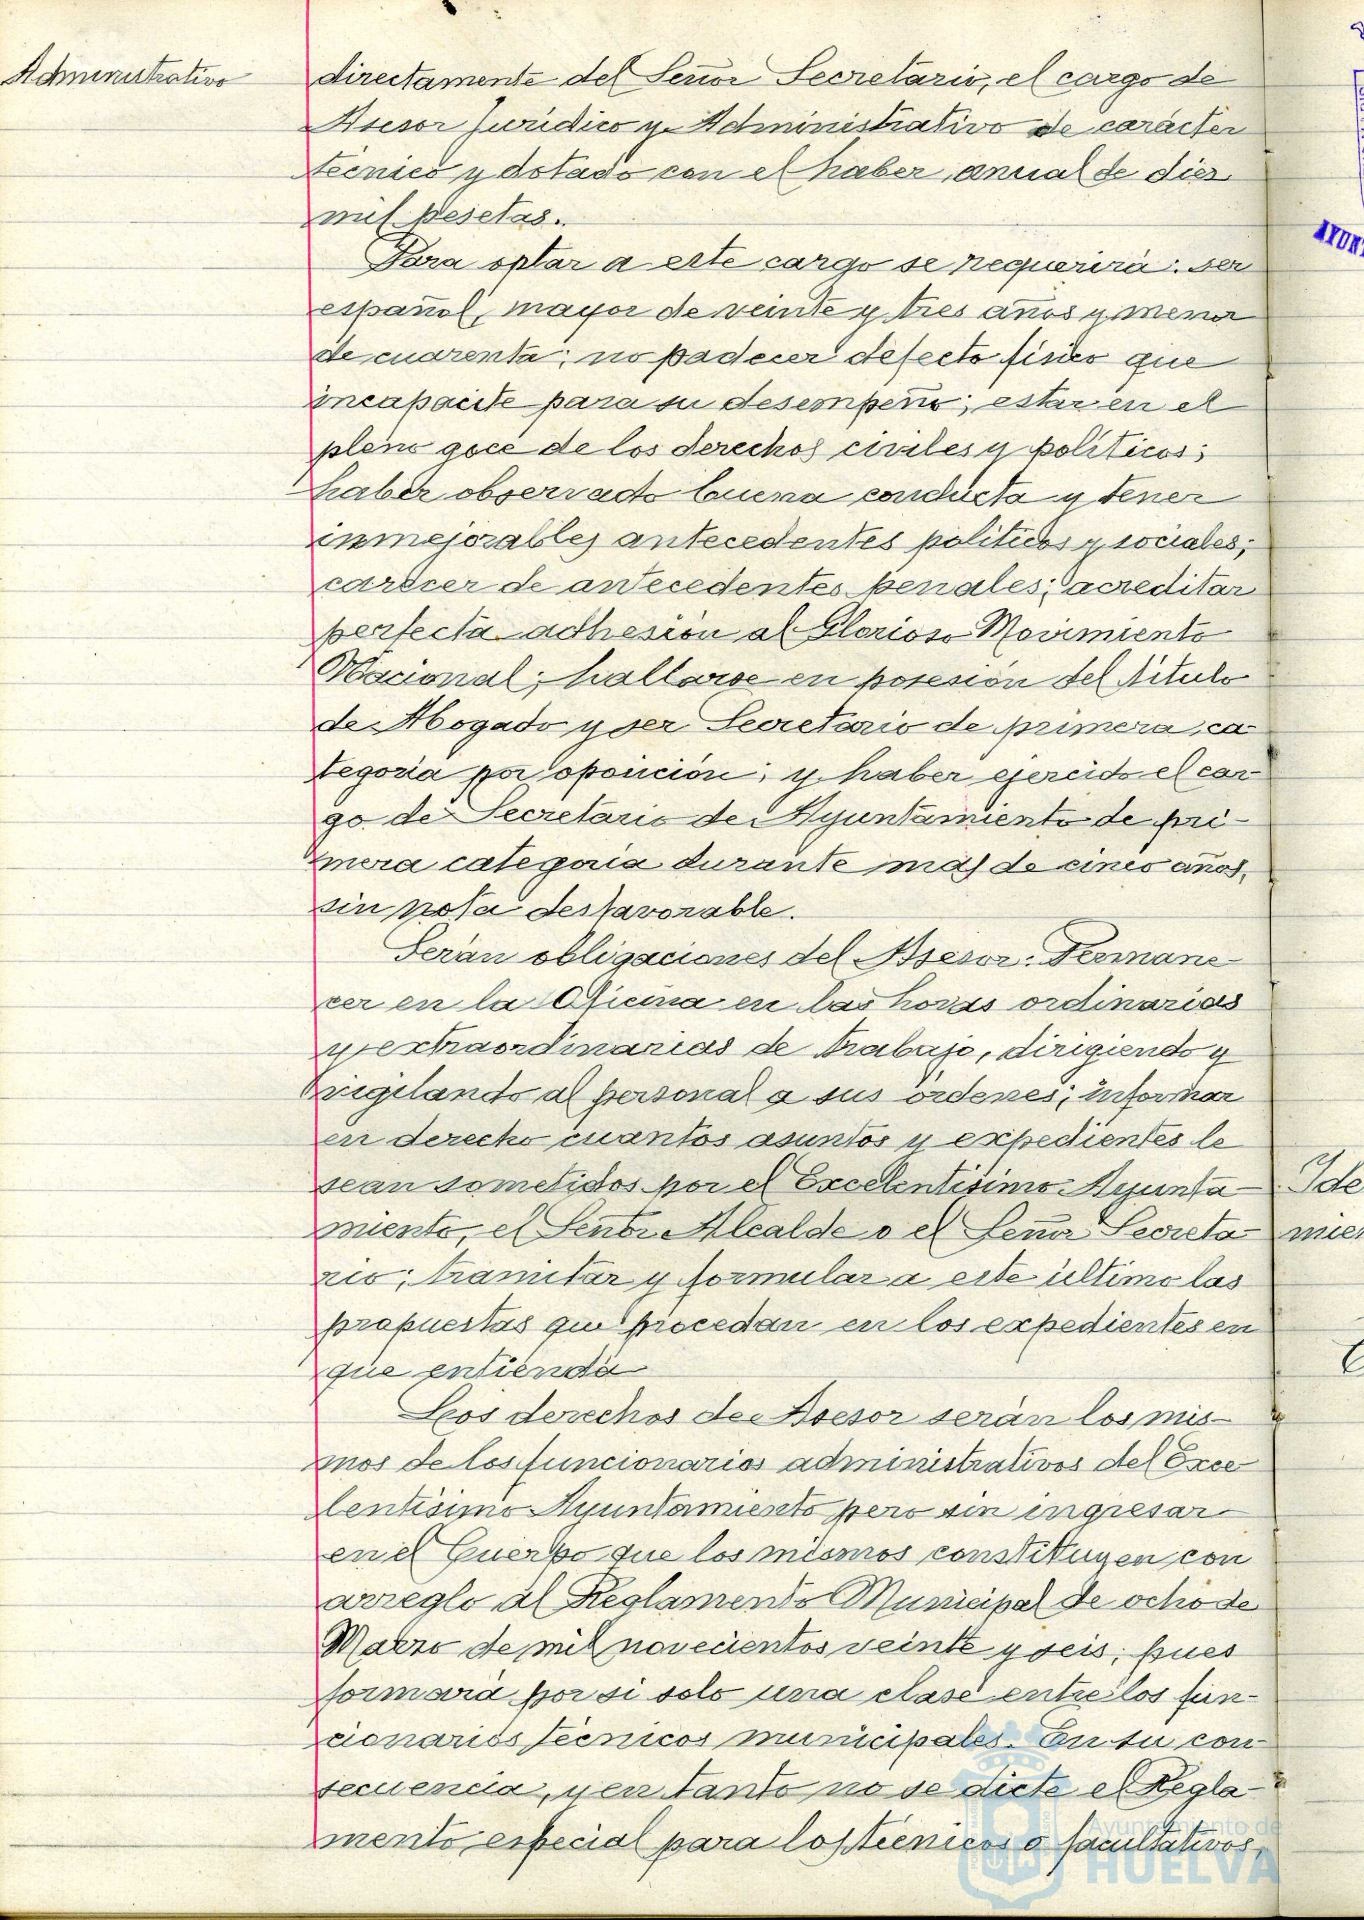 Administrativo
directamente del Señor Secretario, el cargo de
Asesor Jurídico y Administrativo de carácter
técnico y dotado con el haber anual de diez
mil pesetas.
Para optar a este cargo se requerirá: ser
español, mayor de veinte y tres años y menor
de cuarenta; no padecer defecto físico que
incapacite para su desempeño; estar en el
pleno goce de los derechos civiles y políticos;
haber observado buena conducta y tener
inmejorables antecedentes políticos y sociales;
carecer de antecedentes penales; acreditar
perfecta adhesión al Glorioso Movimiento
Nacional; hallarse en posesión del título
de Abogado y ser Secretario de primera ca-
tegoría por oposición; y haber ejercido el car-
go de Secretario de Ayuntamiento de pri-
mera categoría durante mas de cinco años,
sin nota desfavorable.
Serán obligaciones del Asesor: Permane-
cer en la Oficina en las horas ordinarias
y extraordinarias de trabajo, dirigiendo y
vigilando al personal a sus órdenes; informar
en derecho cuantos asuntos y expedientes le
sean sometidos por el Excelentísimo Ayunta-
miento, el Señor Alcalde o el Señor Secreta-
rio; tramitar y formular a este último las
propuestas que procedan en los expedientes en
que entienda
Los derechos del Asesor serán los mis-
mos de los funcionarios administrativos del Exce-
lentísimo Ayuntamiento pero sin ingresar
en el Cuerpo que los mismos constituyen con
arreglo al Reglamento Municipal de ocho de
Marzo de mil novecientos veinte y seis; pues
formará por si solo una clase entre los fun-
cionarios técnicos municipales. En su con-
secuencia, y en tanto no se dicte el Regla-
mento especial para los técnicos o facultativos,
Ayuntamiento de
HUELVA
AYUNT
Ide
mien